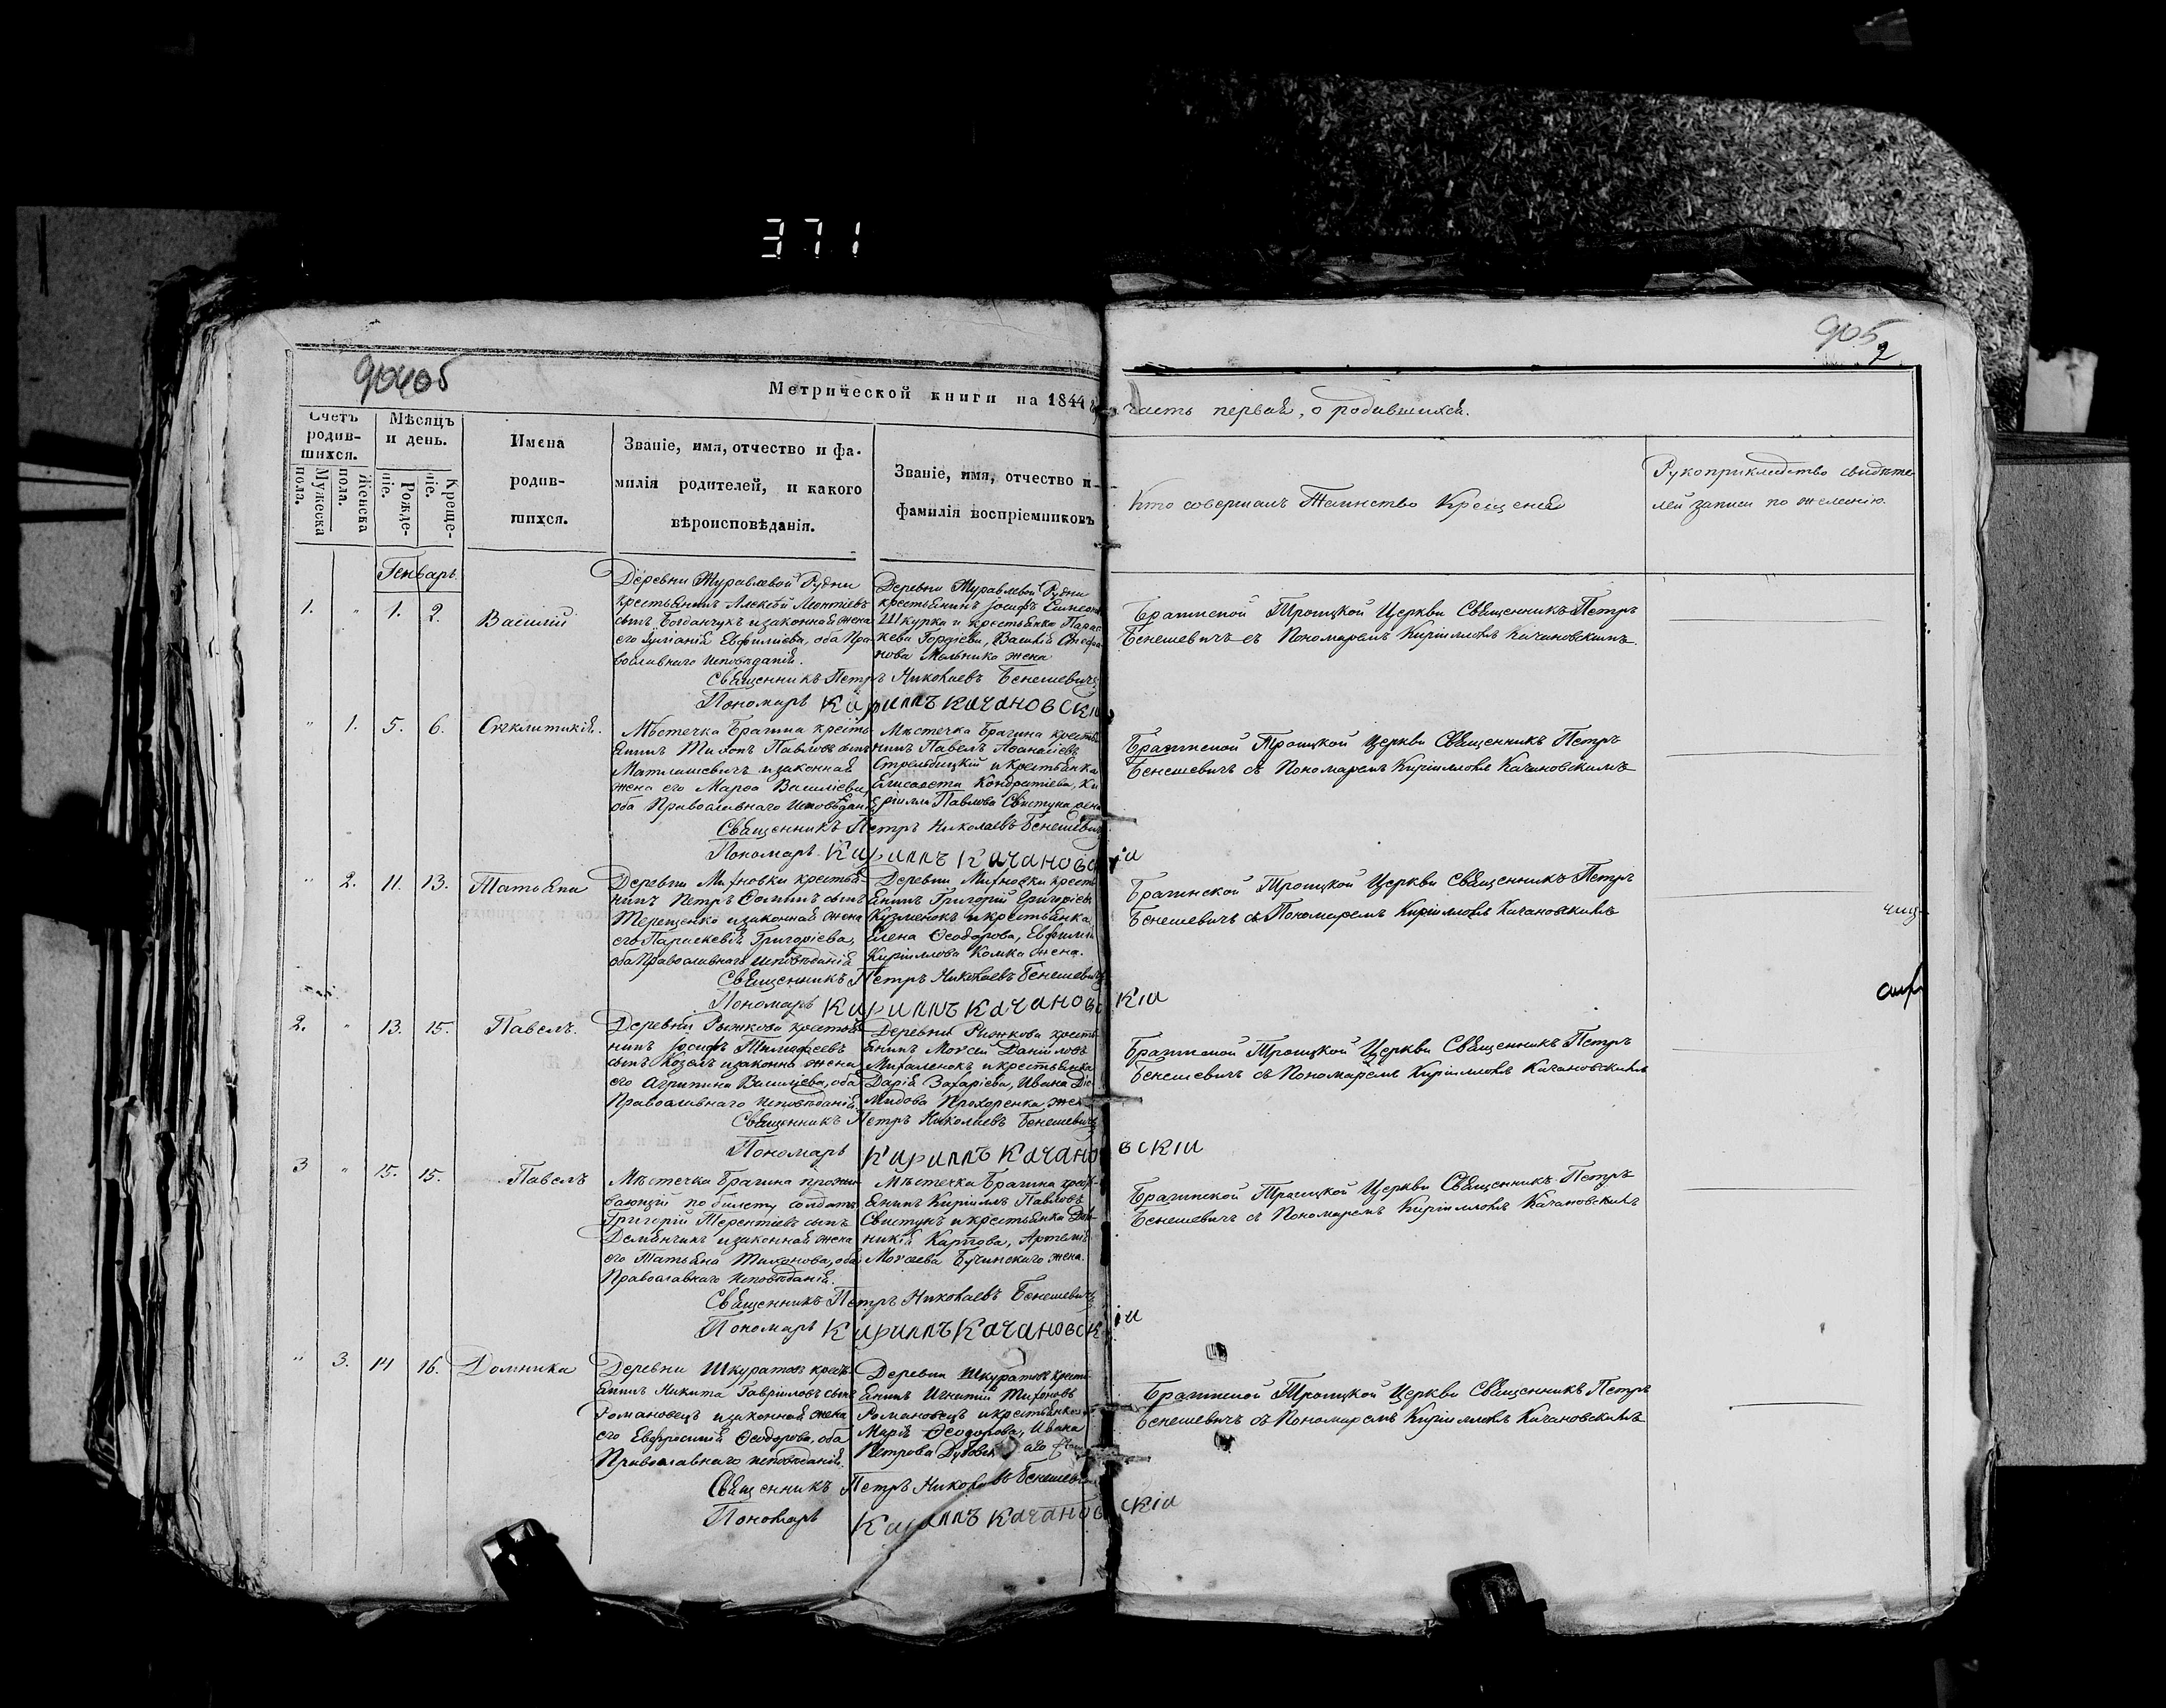 371
904об
905
2
Метрической книги на 1844 г.
часть первая, о родившихся.
Счетъ родив-
шихся.
Мужеска пола.
Женска пола.
Мѣсяцъ и день.
Рожде-
ніе.
Креще-
ніе.
Имена
родив-
шихся.
Званіе, имя, отчество и фа-
милія родителей, и какого
вѣроисповѣданія.
Званіе, имя, отчество и
фамилія воспріемниковъ
Кто совершалъ Таинство Крещенія
Рукоприкладство свидѣте
лей записи по желанію.
Генварь.
1. " 1. 2.
Василій
Деревни Журавлевой Рудни
крестьянинъ Алексѣй Леонтіевъ
сынъ Богданчукъ и законная жена
его Іуліанія Евфиміева, оба Пра
вославнаго исповѣданія.
Деревни Журавлевой Рудни
крестьянинъ Іосифъ Симеоно
Шкурка и крестьянка Парас
кева Гордіева, Василія Стефа
нова Мельника жена
Брагинской Троицкой Церкви Священникъ Петръ
Бенешевичъ съ Пономаремъ Кирилломъ Качановскимъ.
Священникъ Петръ Николаевъ Бенешевичъ
Пономарь Кириллъ Качановскіи
" 1. 5. 6.
Сѵнклитикія.
Мѣстечка Брагина кресть
янинъ Тихонъ Павловъ сынъ
Матюшевичъ и законная
жена его Марѳа Василіева,
оба Православнаго Исповѣданія
Мѣстечка Брагина крестья
нинъ Павелъ Аѳанасіевъ
Стрельбицкій и крестьянка
Елисавета Кондратіева, Ки
рилла Павлова Свистуна жена
Брагинской Троицкой Церкви Священникъ Петръ
Бенешевичъ съ Пономаремъ Кирилломъ Качановскимъ
Священникъ Петръ Николаевъ Бенешевичъ
Пономарь Кириллъ Качановскіи
" 2. 11. 13.
Татьяна
Деревни Михновки крестья
нинъ Петръ Ѳоминъ сынъ
Терещенко и законная жена
его Параскевія Григоріева,
оба Православнаго исповѣданія
Деревни Михновки кресть
янинъ Григорій Григоріевъ
Кузменокъ и крестьянка
Елена Ѳеодорова, Евфимія
Кириллова Комка жена.
Брагинской Троицкой Церкви Священникъ Петръ
Бенешевичъ съ Пономаремъ Кирилломъ Качановскимъ
Священникъ Петръ Николаевъ Бенешевичъ
Пономарь Кириллъ Качановскіи
2. " 13. 15.
Павелъ.
Деревни Рыжкова крестья
нинъ Іосифъ Тимофеевъ
сынъ Козелъ и законна жена
его Агрипина Василіева, оба
Православнаго исповѣданія.
Деревни Рыжкова кресть
янинъ Моѵсей Даніиловъ
Михаленокъ и крестьянка
Дарія Захаріева, Ивана Діо
мидова Прохоренка жена
Брагинской Троицкой Церкви Священникъ Петръ
Бенешевичъ съ Пономаремъ Кирилломъ Качановскимъ
Священникъ Петръ Николаевъ Бенешевичъ
Пономарь Кириллъ Качановскіи
3 " 15. 15.
Павелъ
Мѣстечка Брагина прожи
вающій по билету солдатъ
Григорій Терентіевъ сынъ
Демянчикъ и законная жена
его Татьяна Тихонова, оба
Православнаго исповѣданія.
Мѣстечка Брагина крест-
янинъ Кириллъ Павловъ
Свистунъ и крестьянка Дом-
никія Карпова, Артемія
Моѵсеева Бучинскаго жена.
Брагинской Троицкой Церкви Священникъ Петръ
Бенешевичъ съ Пономаремъ Кирилломъ Качановскимъ
Священникъ Петръ Николаевъ Бенешевичъ
Пономарь Кириллъ Качановскіи
" 3. 14 16.
Домника
Деревни Шкуратовъ кресть
янинъ Никита Гавріиловъ сынъ
Романовецъ и законная жена
его Евфросинія Ѳеодорова, оба
Православнаго исповѣданія.
Деревни Шкуратовъ кресть
янинъ Игнатій Тихоновъ
Романовецъ и крестьянка
Марія Ѳеодорова, Ивана
Петрова
Брагинской Троицкой Церкви Священникъ Петръ
Бенешевичъ съ Пономаремъ Кирилломъ Качановскимъ
Священникъ Петръ Николаевъ Бенешевичъ
Пономарь Кириллъ Качановскіи